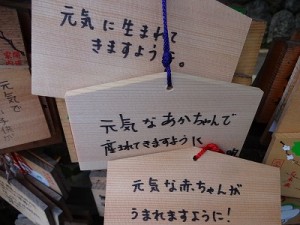 元気に生まれて
きますような。
元気なあかちゃんで
産まれてきますように
元気な赤ちゃんが
うまれますように!
元気で